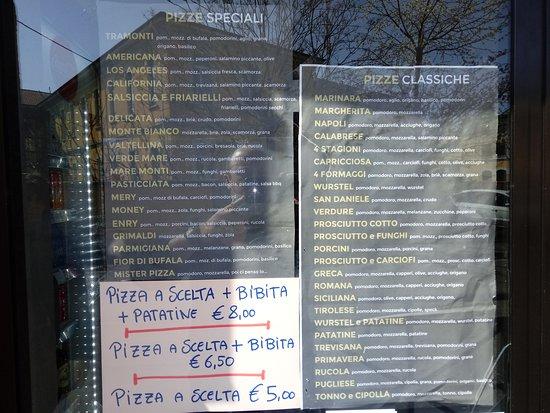 PIZZE SPECIALI
TRAMONTI pom., mozz. di bufala, pomodorini, aglio, grana
origano, basilico
AMERICANA pom., mozz., peperoni, salamino piccante, olive
LOS ANGELES pom., mozz., salsiccia fresca, scamorza
CALIFORNIA pom., mozz., trevisana, salamino piccante, scamorza
SALSICCIA E FRIARIELLI pom., mozz., salsiccia, scamorza,
friarielli, pomodorini secchi
DELICATA pom., mozz., bria, crudo, pomodorini
MONTE BIANCO mozzarella, bria, zola, scamorza, grana
VALTELLINA pom., mozz., porcini, bresaola, bria, rucola
VERDE MARE pom., mozz., rucola, gamberetti, pomodorini
MARE MONTI pom., mozz., funghi, gamberetti
PASTICCIATA pom., mozz., bacon, salsiccia, patatine, salsa bbq
MERY pom., mozz. di bufala, carciofi, pomodorini
MONEY pom., mozz., zola, funghi, salamino piccante
ENRY pom., mozz., porcini, bacon, salsiccia, peperoni, rucola
GRIMALDI mozzarella, prosciutto crudo, grana
PARMIGIANA pom., mozz., melanzane, grana, pomodorini, basilico
FIOR DI BUFALA pom., mozz. di bufala, pomodorini, basilico
MISTER PIZZA pomodoro, mozzarella, poi ci penso io...
PIZZA A SCELTA + BIBITA
+ PATATINE € 8,00
PIZZA A SCELTA + BIBITA
€ 6,50
PIZZA A SCELTA € 5,00
PIZZE CLASSICHE
MARINARA pomodoro, aglio, origano, basilico
MARGHERITA pomodoro, mozzarella, origano
NAPOLI pomodoro, mozzarella, acciughe, origano
CALABRESE pomodoro, mozzarella, salamino piccante
4 STAGIONI pom., mozz., carciofi, funghi, cotto, olive
CAPRICCIOSA pom., mozz., carciofi, funghi, cotto, olive, acciughe
4 FORMAGGI pomodoro, mozzarella, zola, bria, scamorza, grana
WURSTEL pomodoro, mozzarella, wurstel
SAN DANIELE pomodoro, mozzarella, crudo
VERDURE pomodoro, mozzarella, melanzane, zucchine, peperoni
PROSCIUTTO COTTO pomodoro, mozzarella, prosciutto cotto
PROSCIUTTO e FUNGHI pom., mozz., prosciutto cotto, funghi
PORCINI pomodoro, mozzarella, porcini, grana
PROSCIUTTO e CARCIOFI pom., mozz., prosc. cotto, carciofi
GRECA pomodoro, mozzarella, capperi, olive, acciughe, origano
ROMANA pomodoro, mozzarella, capperi, acciughe, origano
SICILIANA pomodoro, olive, capperi, acciughe, origano
TIROLESE pomodoro, mozzarella, cipolla, speck
WURSTEL e PATATINE pomodoro, mozzarella, wurstel, patatine
PATATINE pomodoro, mozzarella, patatine
TREVISANA pomodoro, mozzarella, trevisana, grana
PRIMAVERA pomodoro, mozzarella, rucola, pomodorini, grana
RUCOLA pomodoro, mozzarella, rucola
PUGLIESE pomodoro, mozzarella, cipolla, grana, pomodorini, origano, basilico
TONNO e CIPOLLA pomodoro, mozzarella, tonno, cipolla